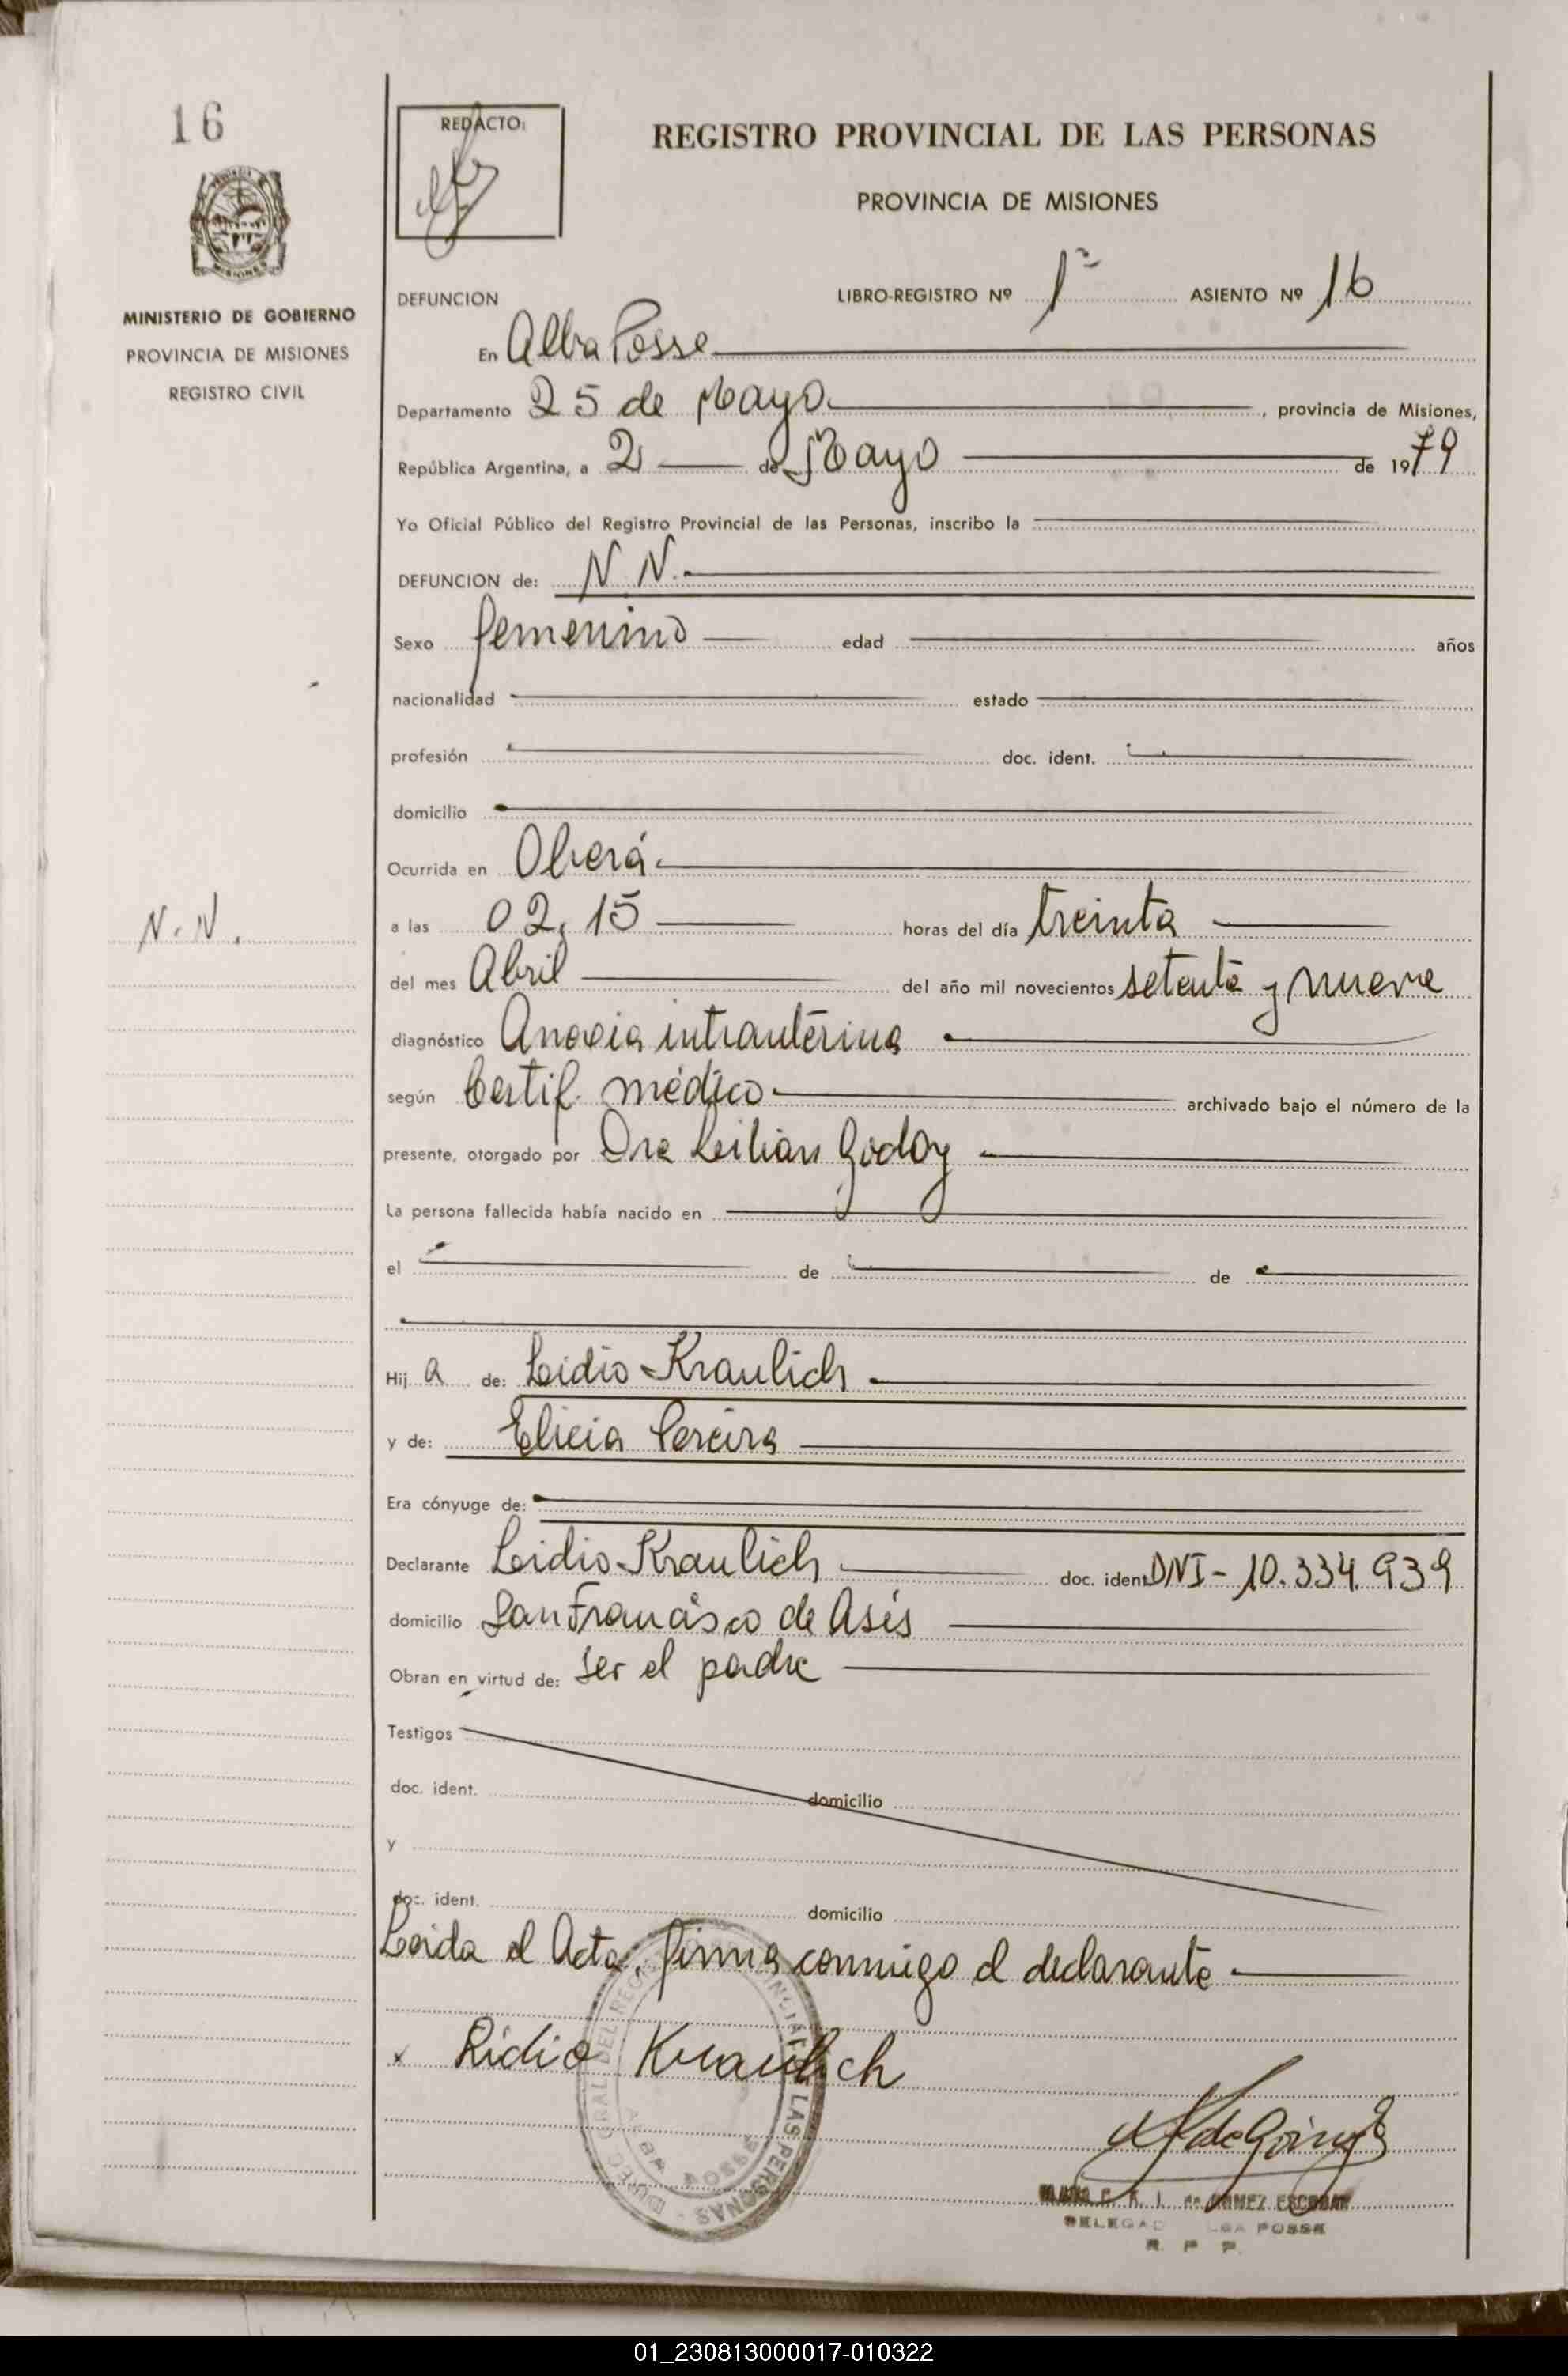 16
REDACTO:
REGISTRO PROVINCIAL DE LAS PERSONAS
PROVINCIA DE MISIONES
MINISTERIO DE GOBIERNO
PROVINCIA DE MISIONES
REGISTRO CIVIL
DEFUNCION LIBRO-REGISTRO Nº 1º ASIENTO Nº 16
En Alba Posse
Departamento 25 de Mayo, provincia de Misiones,
República Argentina, a 2 de Mayo de 1979
Yo Oficial Público del Registro Provincial de las Personas, inscribo la
DEFUNCION de: N.N.
Sexo femenino edad años
nacionalidad estado
profesión doc. ident.
domicilio
Ocurrida en Oberá
N.N.
a las 02,15 horas del día treinta
del mes Abril del año mil novecientos setenta y nueve
diagnóstico Anoxia intrautérina
según Certif. médico archivado bajo el número de la
presente, otorgado por Dra Leilian Godoy
La persona fallecida había nacido en
el de de
Hij a de: Lidio Kraulich
y de: Elicia Pereira
Era cónyuge de:
Declarante Lidio Kraulich doc. ident. DNI - 10.334.939
domicilio San Francisco de Asís
Obran en virtud de: ser el padre
Testigos
doc. ident. domicilio
y
doc. ident. domicilio
Leida el Acta, firma conmigo el declarante
x Ridio Kraulich
DE LAS PERSONAS
ALBA POSSE
de GOMEZ ESCOBAR
POSSE
R. P. P.
01_230813000017-010322